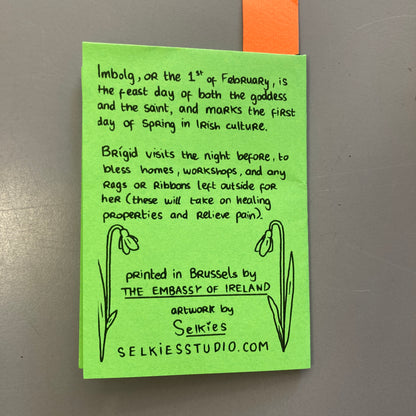 Imbolg, OR the 1st of February, is
the feast day of both the goddess
and the saint, and marks the first
day of spring in Irish culture.
Brígid visits the night before, to
bless homes, workshops, and any
Rags or Ribbons left outside for
her (these will take on healing
properties and relieve pain).
printed in Brussels by
THE EMBASSY OF IRELAND
artwork by
Selkies
SELKIESSTUDIO.COM